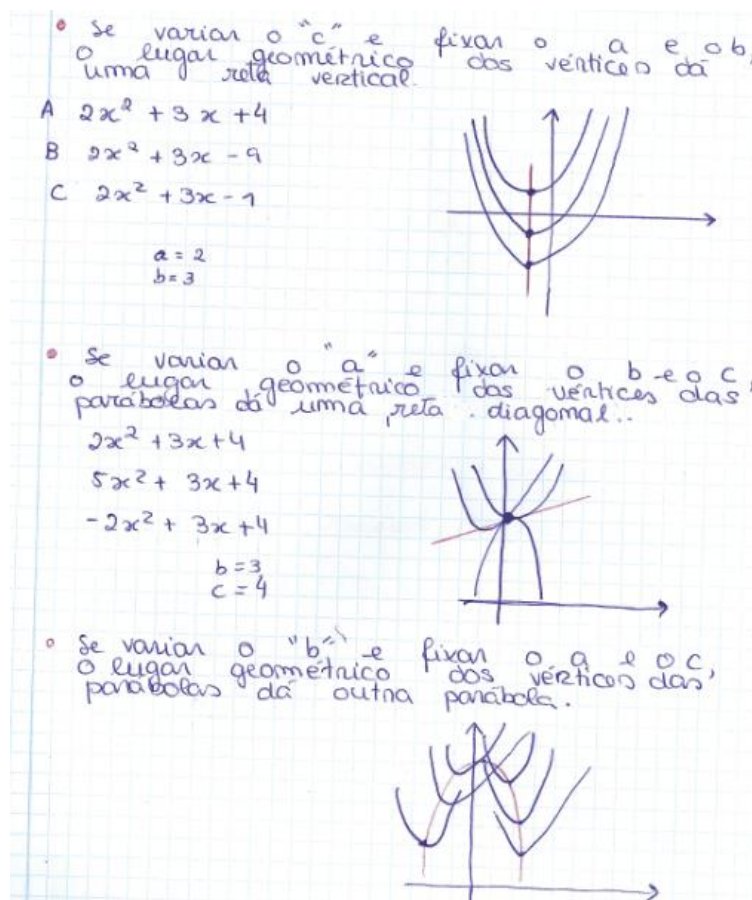 • Se variar o "c" e fixar o a e o b,
o lugar geométrico dos vértices dá
uma reta vertical.
A 2x² + 3x + 4
B 2x² + 3x - 9
C 2x² + 3x - 1
a = 2
b = 3
• Se variar o "a" e fixar o b e o c,
o lugar geométrico dos vértices das
parábolas dá uma reta diagonal..
2x² + 3x + 4
5x² + 3x + 4
-2x² + 3x + 4
b = 3
c = 4
• Se variar o "b" e fixar o a e o c,
o lugar geométrico dos vértices das
parábolas dá outra parábola.